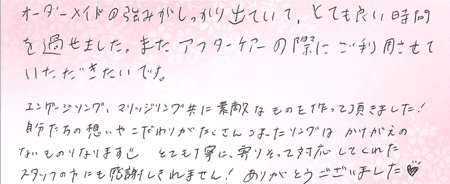 オーダーメイドの強みがしっかり出ていて、とても良い時間
を過せました。またアフターケアーの際にご利用させて
いただきたいです。
エンゲージリング、マリッジリング共に素敵なものを作って頂きました!
自分たちの想いやこだわりがたくさんつまったリングは かけがえの
ないものになりますし とても丁寧に、寄りそって対応してくれた
スタッフの方にも感謝しきれません! ありがとうございました♡